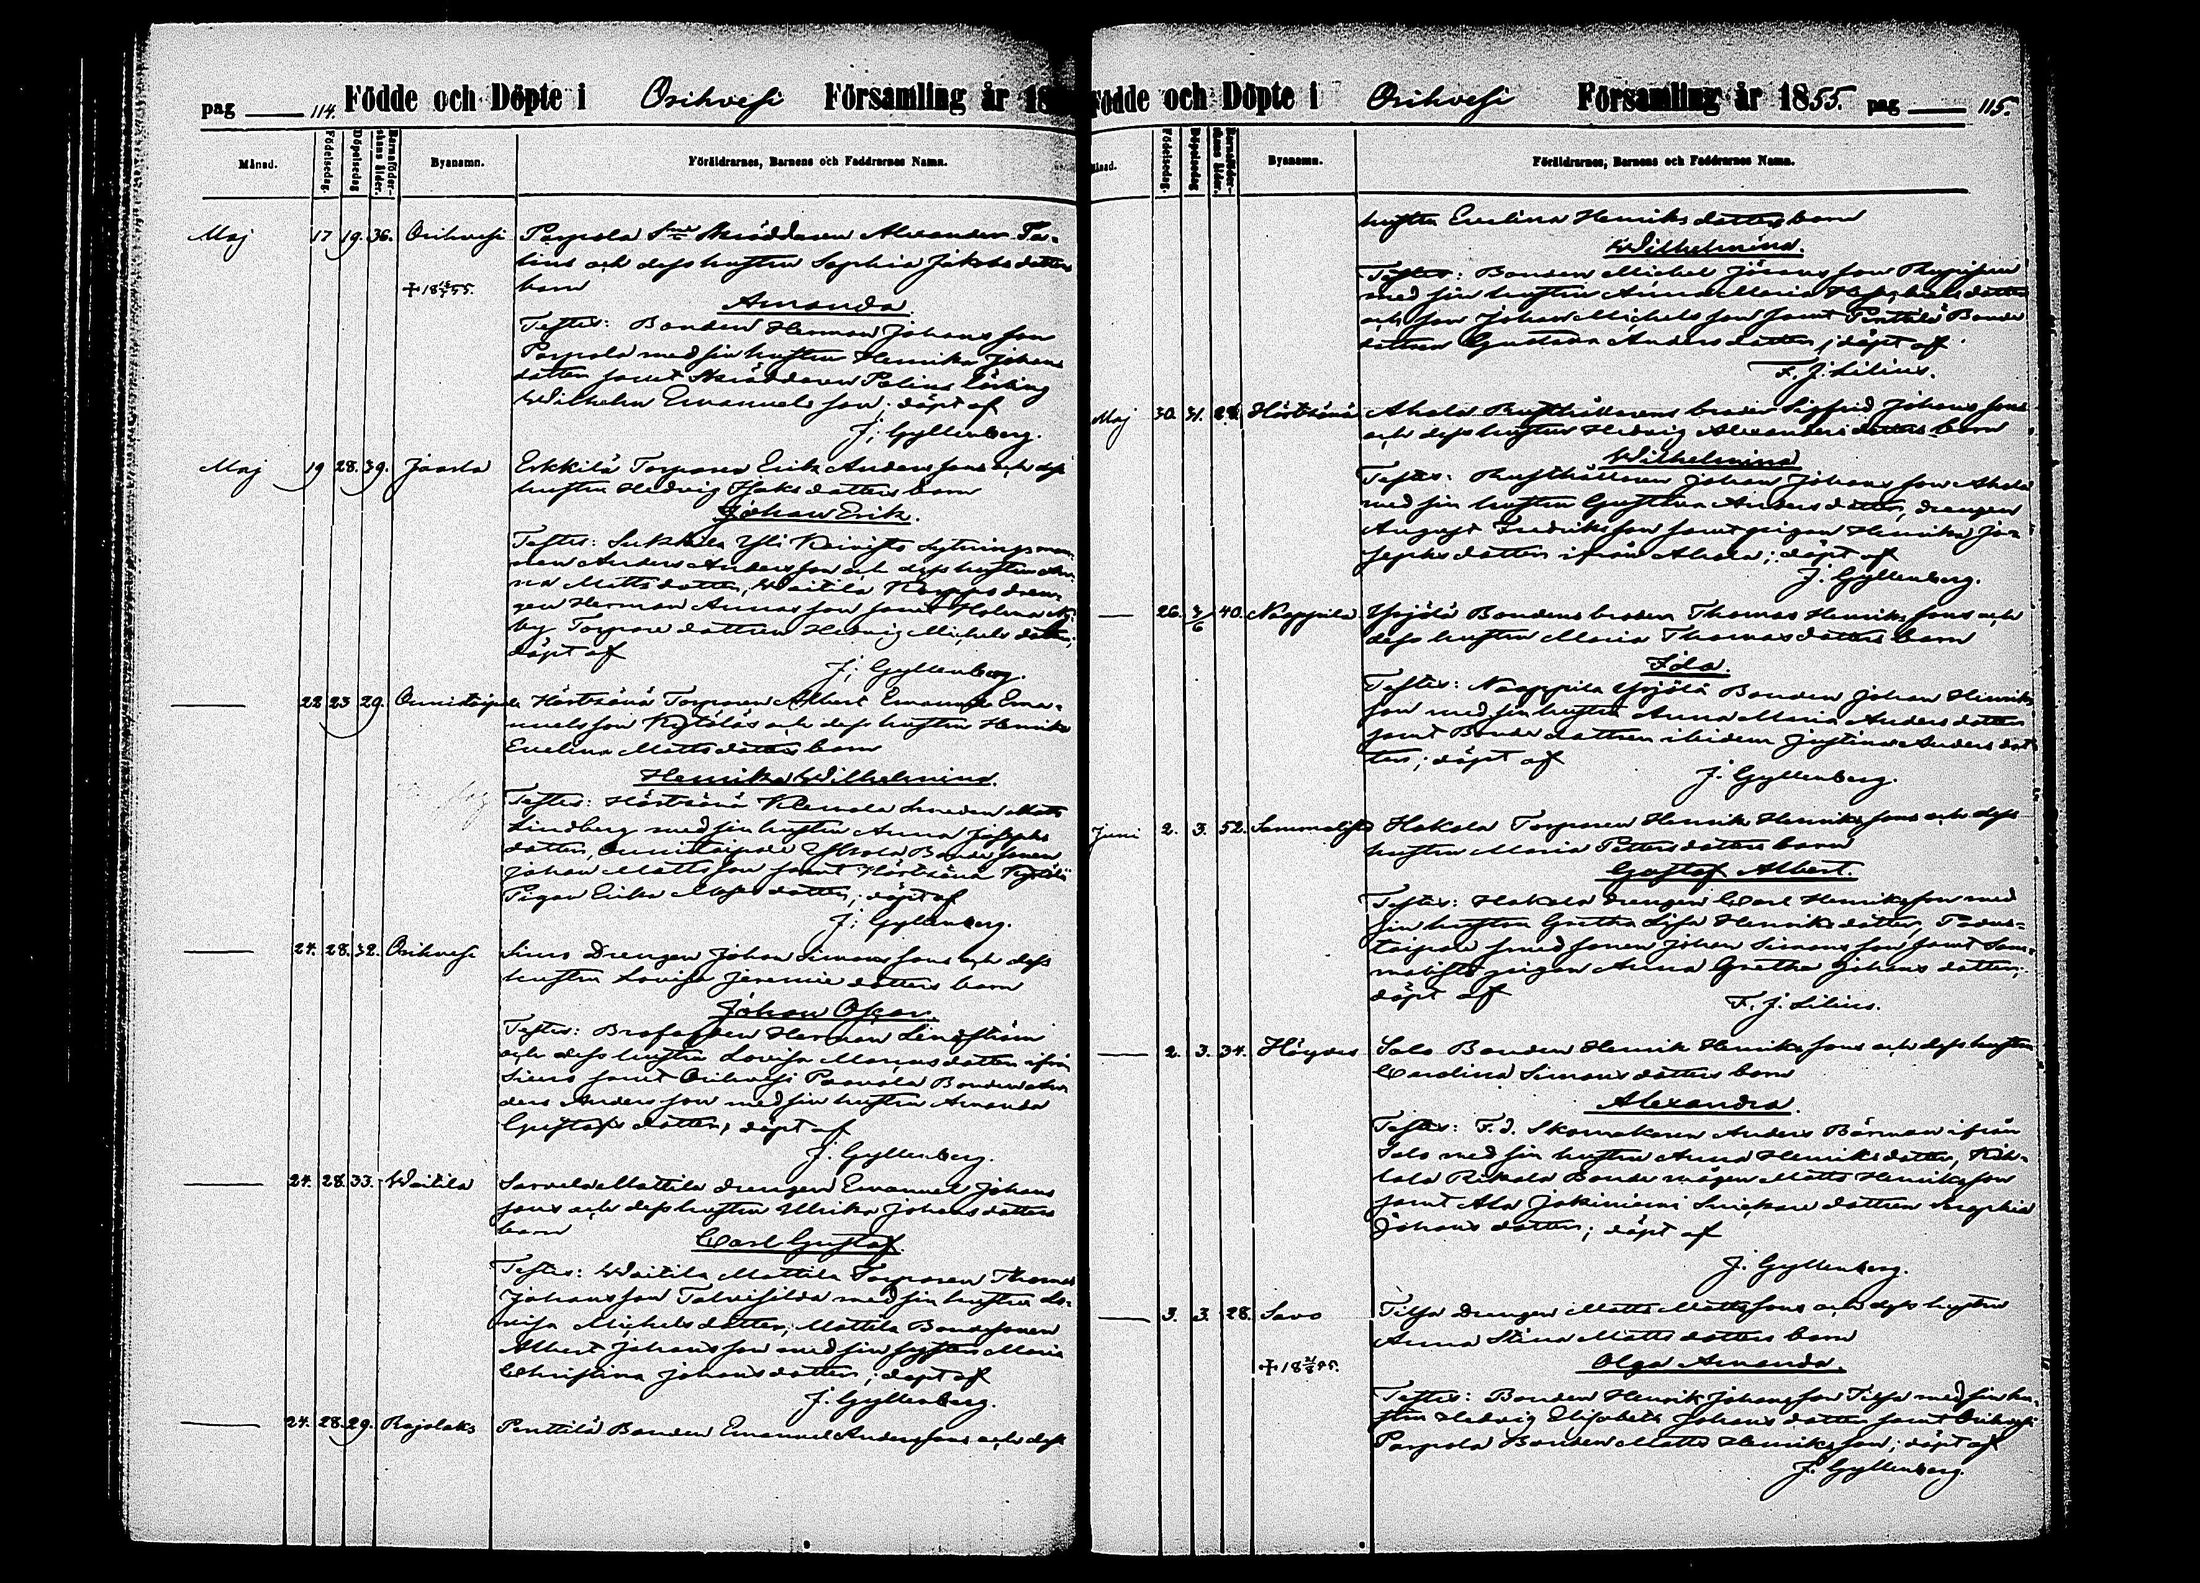 pag 114. Födde och Döpte i Orihvesi Församling år 18
Månad. Födelsedag. Döpelsedag Barnaföderskans ålder. Byanamn. Föräldrarnes, Barnens och Faddrarnes Namn.
Maj 17 19. 36. Orihvesi Parpola Skräddaren Alexander Pa-
lins och dess hustru Sophia Jakobsdotters
barn
Amanda.
Testes: Bonden Herman Johansson
Parpola med sin hustru Henrika Johans
dotter samt Skräddaren Palins Lärling
Wilhelm Emanuelsson; döpt af
J. Gyllenberg.
Maj 19 28. 39. Jaarla Erkkilä Torparen Erik Anderssons och dess
hustru Hedvig Isaksdotters barn
Johan Erik.
Testes: Sytningsman-
nen Anders Andersson och dess hustru An-
na Mattsdotter, Waitila dren-
gen Herman Annasson samt Holma
by Torparedottren Hedvig Michelsdotter,
döpt af
J. Gyllenberg.
22 23 29. Onnistaipale Hörtsänä Torparen Albert Emanuel Ema-
nuelsson och dess hustru Henrika
Evelina Mattsdotters barn
Henrika Wilhelmina.
Testes: Hörtsänä Klemola Smeden Matts
Lindberg med sin hustru Anna Josephs
dotter, Onnistaipale Bondesonen
Johan Mattsson samt Hörtsänä
Pigan Erika dotter; döpt af
J. Gyllenberg.
24. 28. 32. Orihvesi Siers Drengen Johan Simonssons och dess
hustru Lovisa Jeremiedotters barn
Johan Oscar.
Testes: Herman Lindström
och dess hustru Lovisa Mariasdotter ifrån
Siers samt Orihvesi Paavola Bonden An-
ders Andersson med sin hustru Amanda
Gustafsdotter; döpt af
J. Gyllenberg.
24. 28. 33. Waitila Mattila drengen Emanuel Johans
sons och dess hustru Ulrika Johansdotters
barn
Carl Gustaf.
Testes: Waitila Mattila Torparen Thomas
Johansson Talvisilda med sin hustru Lo-
visa Michelsdotter, Mattila Bondesonen
Albert Johansson med sin syster Maria
Christina Johansdotter; döpt af
J. Gyllenberg.
24. 28. 29. Rajalaks Penttilä Bonden Emanuel Anderssons och dess
Födde och Döpte i Orihvesi Församling år 1855. pag 115.
Månad. Födelsedag. Döpelsedag Barnaföderskans ålder. Byanamn. Föräldrarnes, Barnens och Faddrarnes Namn.
hustru Evelina Henriksdotters barn
Wilhelmina.
Testes: Bonden Michel Göransson
med sin hustru Anna Maria dotter
och son Johan Michelsson samt Penttilä Bonde
dottren Gustava Andersdotter; döpt af
F. J. Lilius.
Maj 30. 31. 28. Hörtsänä Ahola Rusthållarens broder Sigfrid Johanssons
och dess hustru Hedvig Alexandersdotters barn
Wilhelmina
Testes: Rusthållaren Johan Johansson Ahola
med sin hustru Gustava Andersdotter, drengen
August Fredriksson samt pigan Henrika Jo-
sephsdotter ifrån Ahola; döpt af
J. Gyllenberg.
26. 3/6 40. Naappila Yrjölä Bondens broder Thomas Henrikssons och
dess hustru Maria Thomasdotters barn
Ida.
Testes: Naappila Yrjölä Bonden Johan Henriks
son med sin hustru Anna Maria Andersdotter
samt Bondedottren ibidem Justina Andersdot-
ter; döpt af
J. Gyllenberg.
Juni 2. 3. 52. Sammalisto Hakala Torparen Henrik Henrikssons och dess
hustru Maria Pettersdotters barn
Gustaf Albert.
Testes: Hakala drengen Carl Henriksson med
sin hustru Gretha Lisa Henriksdotter, Padus-
taipale smedsonen Johan Simonsson samt Sam-
malisto pigan Anna Gretha Johansdotter;
döpt af F. J. Lilius.
2. 3. 34. Höydes Salo Bonden Henrik Henrikssons och dess hustru
Carolina Simonsdotters barn
Alexandra.
Testes: F.d. Skomakaren Anders Bärman ifrån
Salo med sin hustru Anna Henriksdotter,
Bonde mågen Matts Henriksson
samt Ala Jakinieni Snickare dottren Sophia
Johansdotter; döpt af
J. Gyllenberg.
3. 3. 28. Savo Tilsa Drengen Matts Mattssons och dess hustru
Anna Stina Mattsdotters barn
Olga Amanda.
Testes: Bonden Henrik Johansson Tilsa med sin hu-
stru Hedvig Elisabeth Johansdotter samt Orihvesi
Parpola Bonden Matts Henriksson; döpt af
J. Gyllenberg.